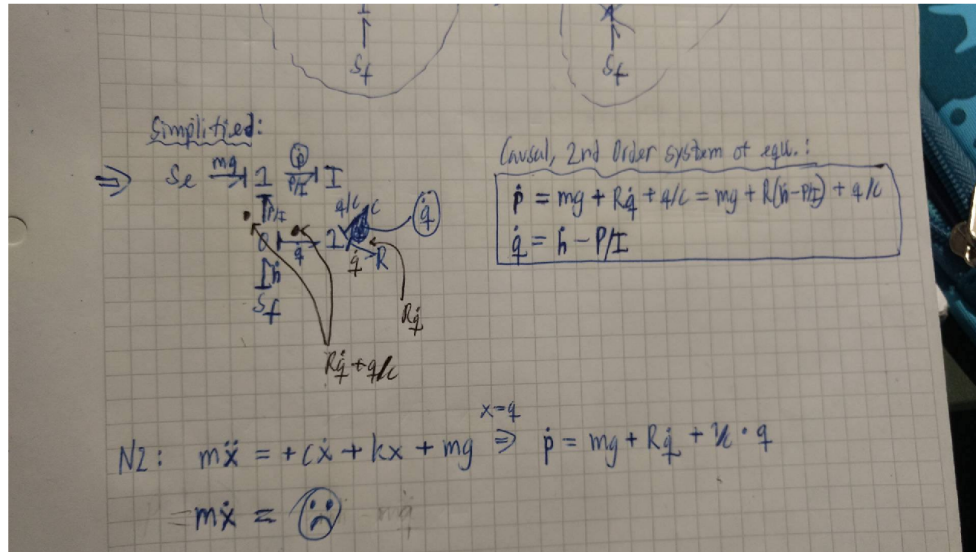 Sf Sf
Simplified:
⇒ Se mg 1 ṗ P/I I
P/I q/C C q̇
0 q̇ 1 q̇ R
ḣ
Sf
Rq̇
Rq̇ + q/C
Causal, 2nd Order system of equ.:
ṗ = mg + Rq̇ + q/C = mg + R(ḣ-P/I) + q/C
q̇ = ḣ - P/I
x=q
N2: mẍ = +cẋ + kx + mg ⇒ ṗ = mg + Rq̇ + 1/C · q
mẋ = ☹